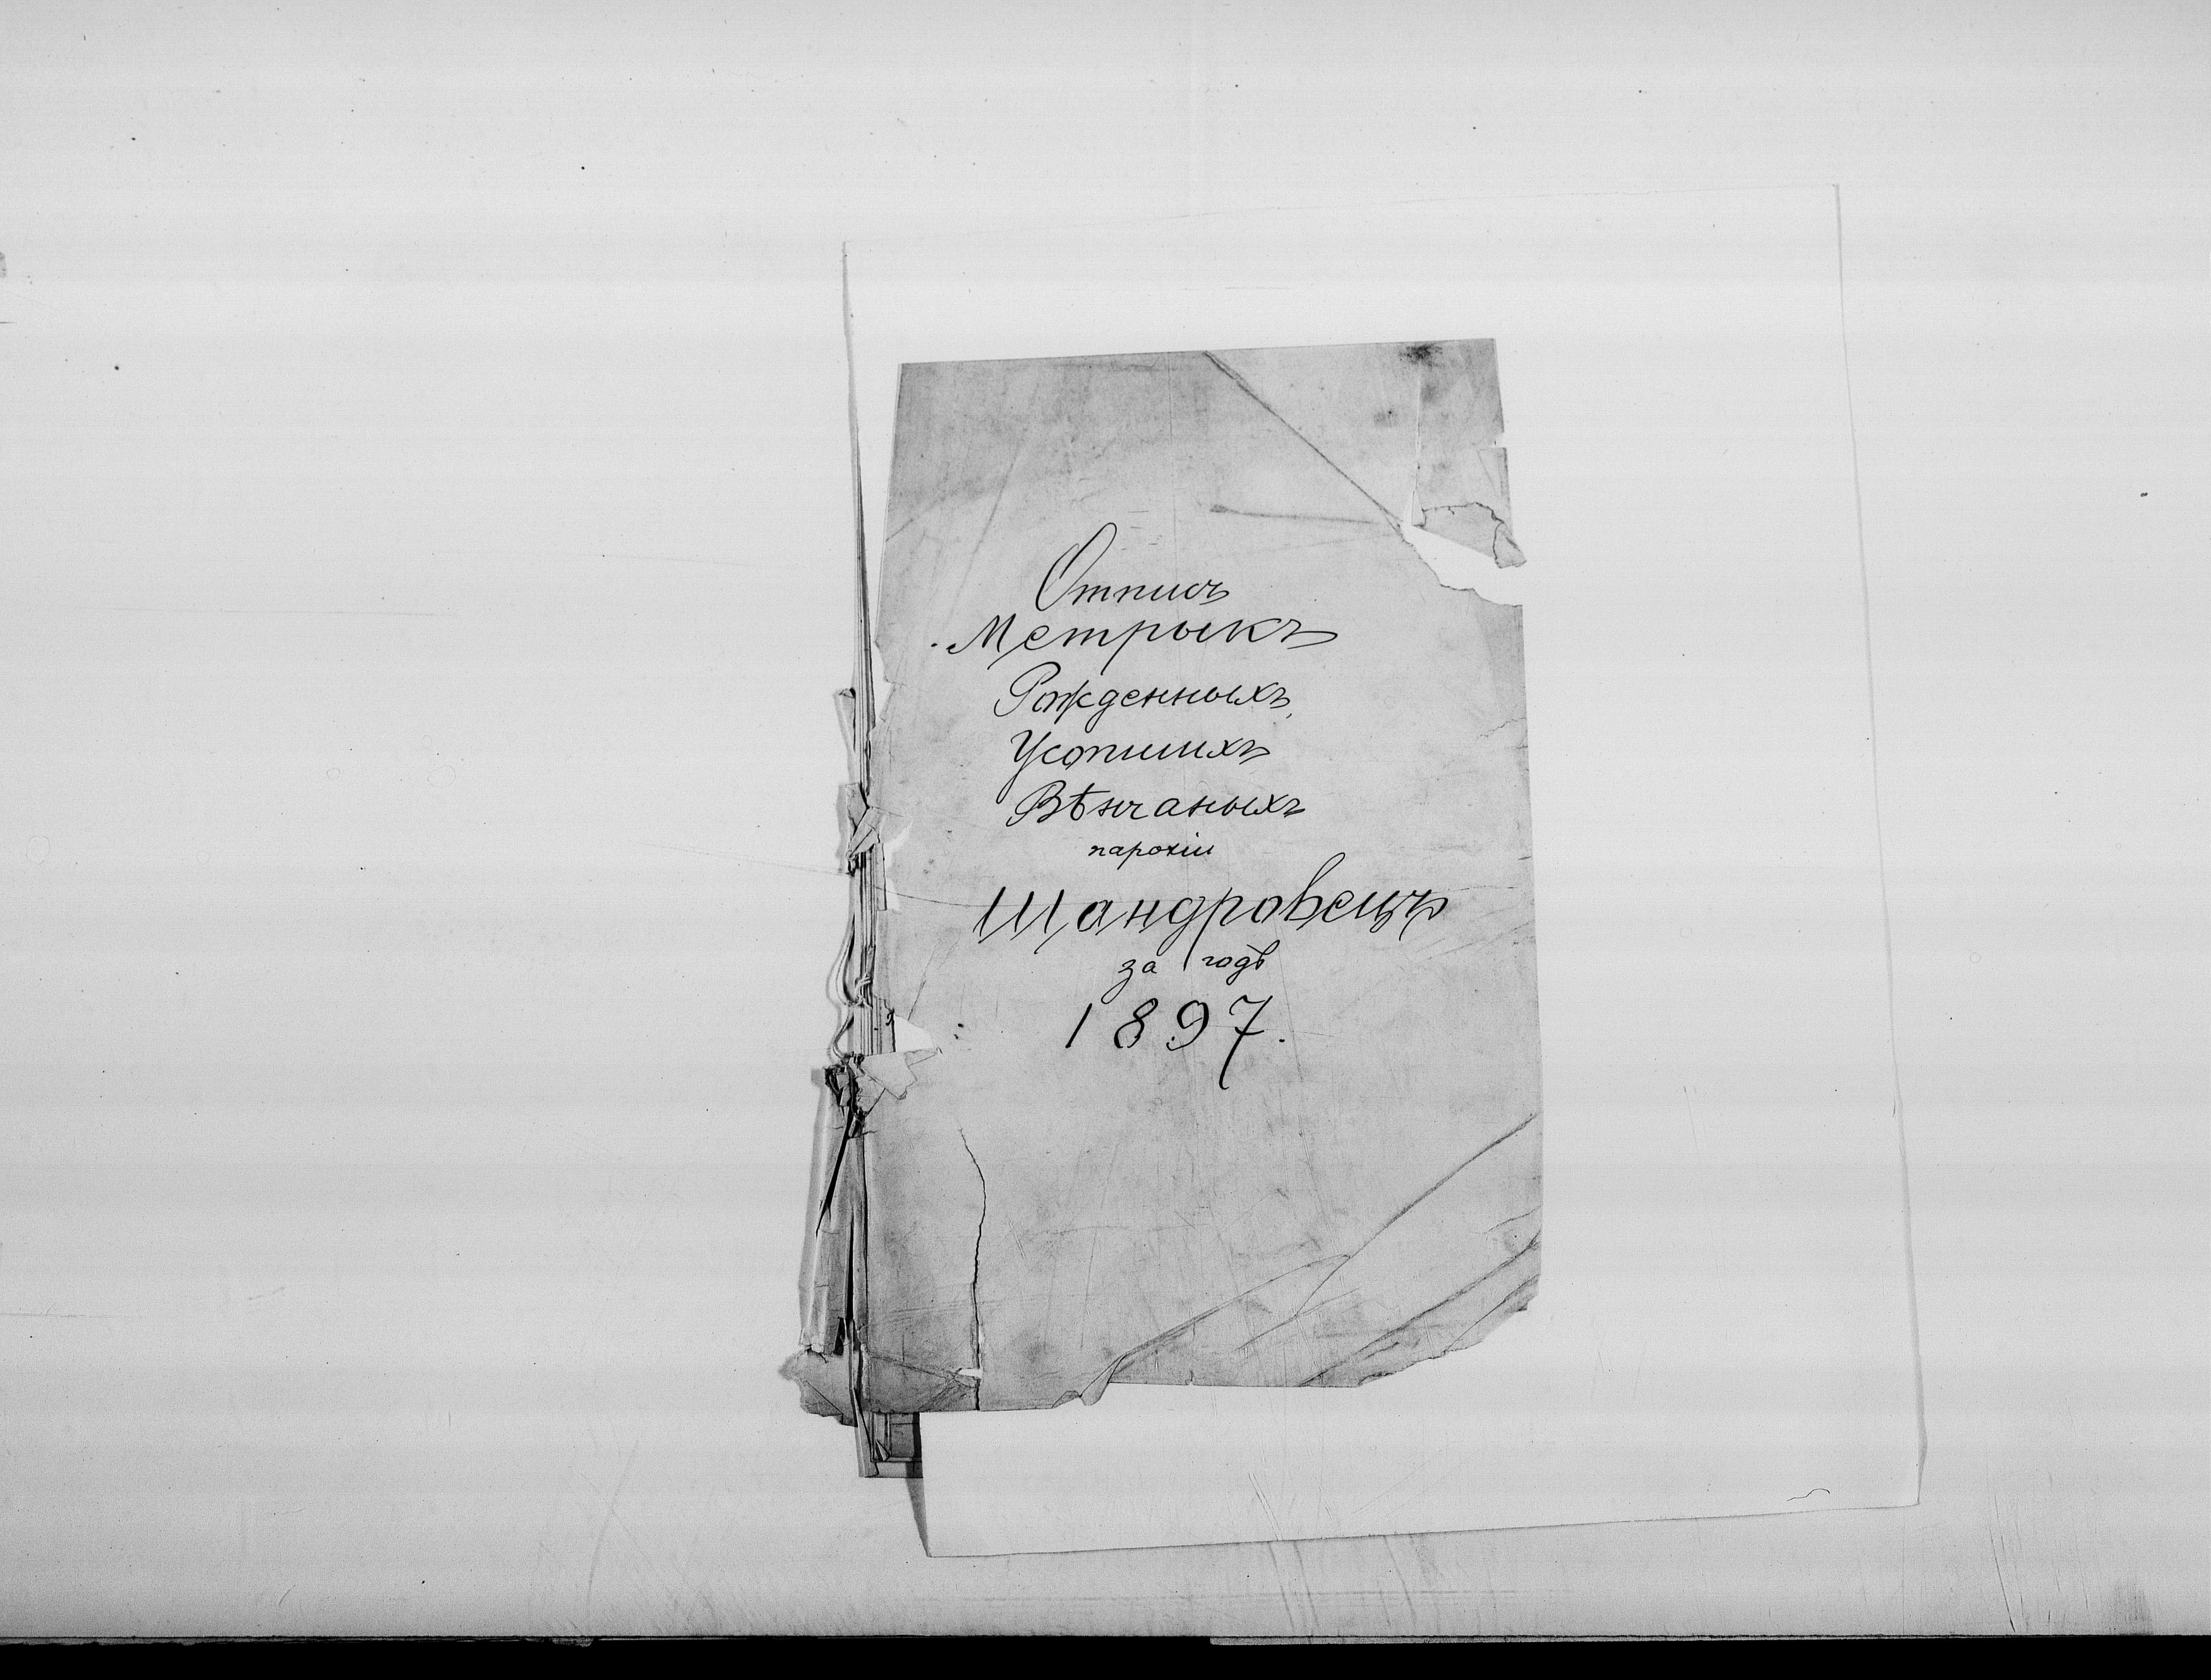 Отписъ
Метрыкъ
Рожденныхъ,
Усопшихъ
Вѣнчаныхъ
парохіи
Шандровецъ
за годъ
1897.